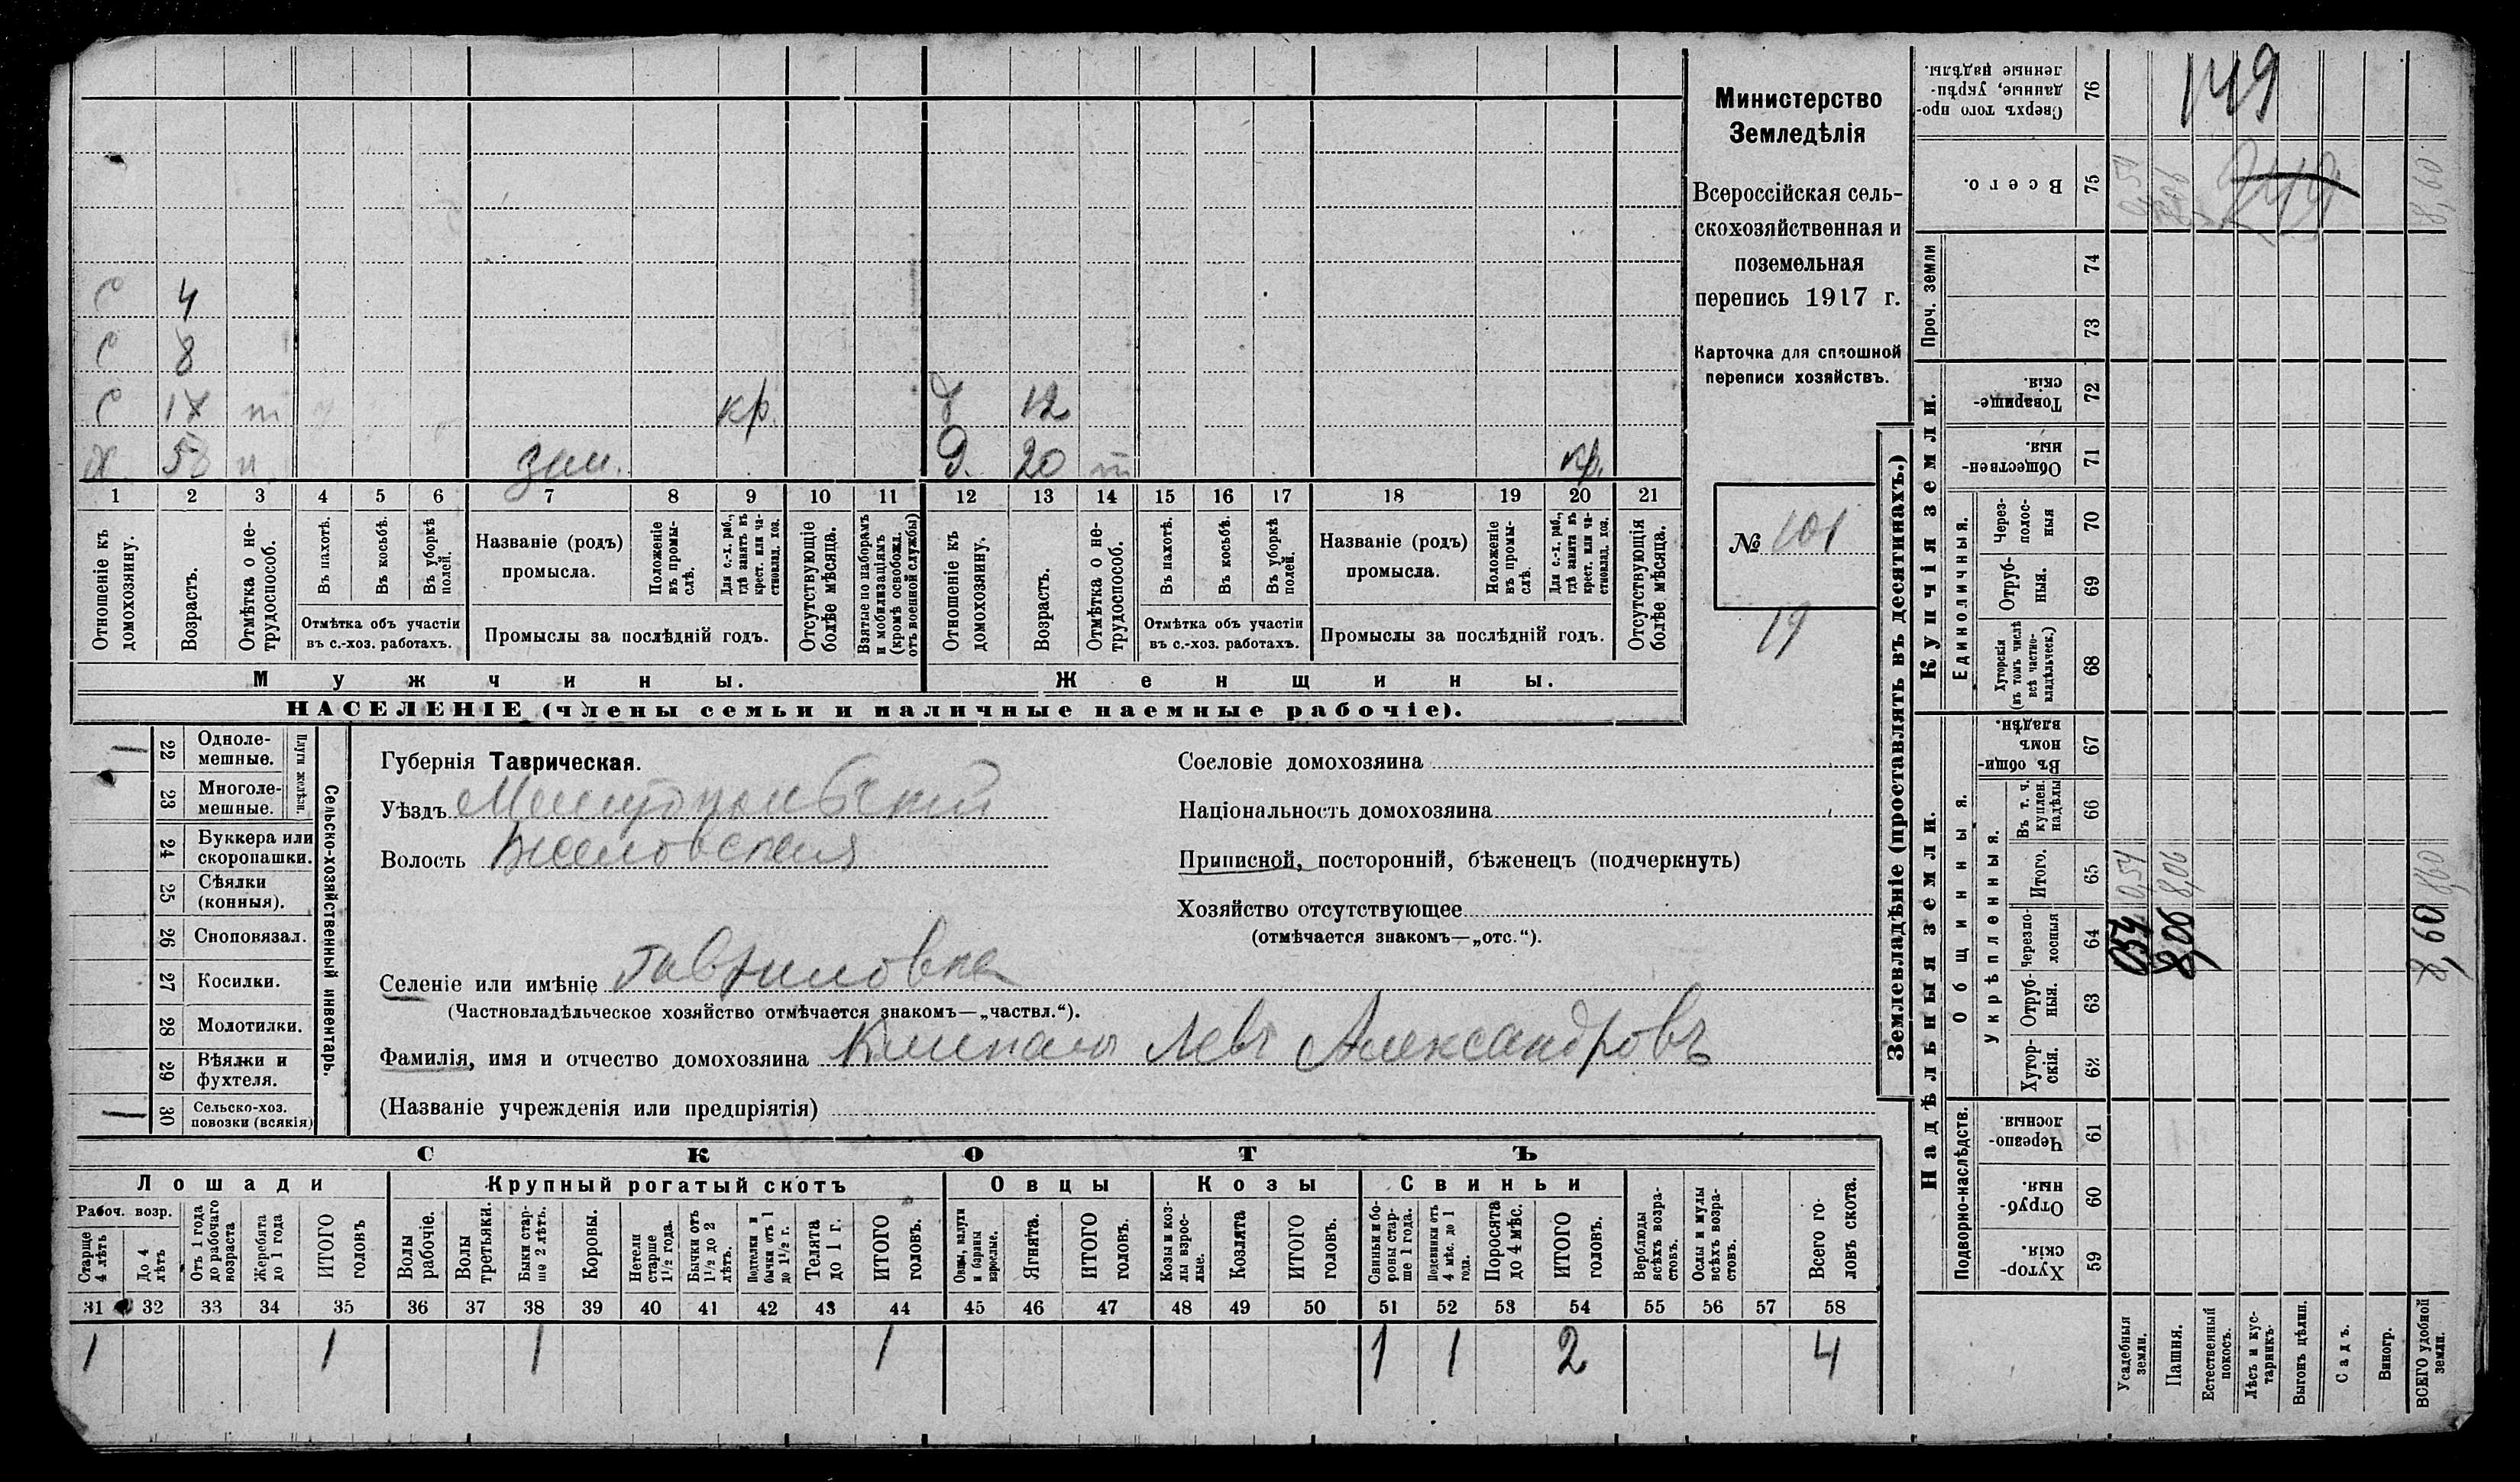 Министерство
Земледѣлія
Всероссійская сель-
скохозяйственная и
поземельная
перепись 1917 г.
Карточка для сплошной
переписи хозяйствъ.
№ 101
19
С 4
С 8
С 17 т кр. 12
Х 58 п зем. 20 т кр.
1 2 3 4 5 6 7 8 9 10 11 12 13 14 15 16 17 18 19 20 21
Отношеніе къ домохозяину.
Возрастъ.
Отмѣтка о не-трудоспособ.
Въ пахотѣ.
Въ косьбѣ.
Въ уборкѣ полей.
Отмѣтка объ участіи
въ с.-хоз. работахъ.
Названіе (родъ)
промысла.
Положеніе въ промы-слѣ.
Для с.-х. раб., гдѣ занятъ въ крест. или ча-стновлад. хоз.
Промыслы за послѣдній годъ.
Отсутствующіе болѣе мѣсяца.
Взятые по наборамъ и мобилизаціямъ (кромѣ освобожд. отъ военной службы)
Отношеніе къ домохозяину.
Возрастъ.
Отмѣтка о не-трудоспособ.
Въ пахотѣ.
Въ косьбѣ.
Въ уборкѣ полей.
Отмѣтка объ участіи
въ с.-хоз. работахъ.
Названіе (родъ)
промысла.
Положеніе въ промы-слѣ.
Для с.-х. раб., гдѣ занята въ крест. или ча-стновлад. хоз.
Промыслы за послѣдній годъ.
Отсутствующія болѣе мѣсяца.
Мужчины.
Женщины.
НАСЕЛЕНІЕ (члены семьи и наличные наемные рабочіе).
22 Одноле-мешные.
23 Многоле-мешные.
Плуги желѣзн.
24 Буккера или скоропашки.
25 Сѣялки (конныя).
26 Сноповязал.
27 Косилки.
28 Молотилки.
29 Вѣялки и фухтеля.
30 Сельско-хоз. повозки (всякія)
Сельско-хозяйственный инвентарь.
Губернія Таврическая.
Уѣздъ Мелитопольскій
Волость
Селеніе или имѣніе Гавриловка
(Частновладѣльческое хозяйство отмѣчается знакомъ—„частвл.“).
Фамилія, имя и отчество домохозяина Левъ Александровъ
(Названіе учрежденія или предпріятія)
Сословіе домохозяина
Національность домохозяина
Приписной, посторонній, бѣженецъ (подчеркнуть)
Хозяйство отсутствующее
(отмѣчается знакомъ—„отс.“).
СКОТЪ
Лошади
Крупный рогатый скотъ
Овцы
Козы
Свиньи
Рабоч. возр.
Старше 4 лѣтъ
До 4 лѣтъ
Отъ 1 года до рабочаго возраста
Жеребята до 1 года
ИТОГО головъ
Волы рабочіе.
Волы третьяки.
Быки стар-ше 2 лѣтъ.
Коровы.
Нетели старше 1½ года.
Бычки отъ 1½ до 2 лѣтъ.
Подтелки и бычки отъ 1 до 1½ г.
Телята до 1 г.
ИТОГО головъ.
Овцы, валухи и бараны взрослые.
Ягнята.
ИТОГО головъ.
Козы и коз-лы взрос-лые.
Козлята
ИТОГО головъ.
Свиньи и бо-ровы стар-ше 1 года.
Подсвинки отъ 4 мѣс. до 1 года.
Поросята до 4 мѣс.
ИТОГО головъ.
Верблюды всѣхъ возра-стовъ.
Ослы и мулы всѣхъ возра-стовъ.
Всего го-ловъ скота.
31 32 33 34 35 36 37 38 39 40 41 42 43 44 45 46 47 48 49 50 51 52 53 54 55 56 57 58
1 1 1 1 1 1 2 4
Землевладѣніе (проставлять въ десятинахъ.)
Надѣльныя земли.
Купчія земли.
Проч. земли
Подворно-наслѣдств.
Общинныя.
Укрѣпленныя.
Единоличныя.
Сверхъ того про-данные, укрѣп-ленные надѣлы. 76
149
Всего. 75 0,54 8,06 8,60
74
73
Товарище-скія. 72
Обществен-ныя. 71
Через-полос-ныя 70
Отруб-ныя. 69
Хуторскія (въ томъ числѣ всѣ частно-владѣльческ.) 68
Въ общин-номъ владѣн. 67
Въ т. ч. куплен. надѣлы 66
Итого. 65 0,54 8,06 8,60
Черезпо-лосныя 64 054 8,06 8,60
Отруб-ныя. 63
Хутор-скія. 62
Черезпо-лосныя. 61
Отруб-ныя. 60
Хутор-скія. 59
Усадебныя земли.
Пашня.
Естественный покосъ.
Лѣсъ и кус-тарникъ.
Выгонъ цѣлин.
Садъ.
Виногр.
ВСЕГО удобной земли.